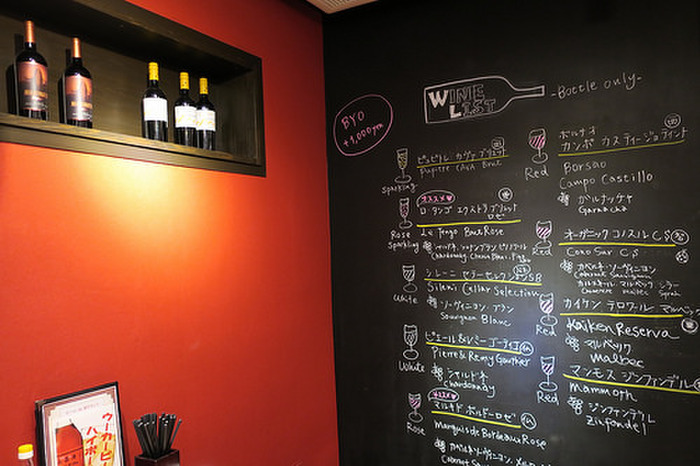 WINE
LIST
-Bottle only-
BYO
+1,000yen
ピュピトレ カヴァ ブリュット
Pupitre CAVA Brut
Sparkling
オススメ
ロ・タンゴ エクストラ ブリュット
ロゼ
Rose
Sparkling
Brut Rose
シャルドネ
Chardonnay
シレーニ セラーセレクション SB
Sileni Cellar Selection
White
ソーヴィニヨン・ブラン
Sauvignon Blanc
ピエール&レミー ゴーティエ
Pierre & Remy Gauthier
White
シャルドネ
Chardonnay
オススメ
マルキ ド ボルドー ロゼ
Marquis de Bordeaux Rose
Rose
ボルサオ
カンポ カスティージョ
Red
Borsao
Campo Castillo
ガルナッチャ
Garnacha
オーガニック コノスル C.S
Red
Cono Sur C.S
カベルネ・ソーヴィニヨン
Cabernet Sauvignon
カイケン テロワール マルベック
Red
Kaiken Reserva
マルベック
Malbec
マンモス ジンファンデル
Red
Mammoth
ジンファンデル
Zinfandel